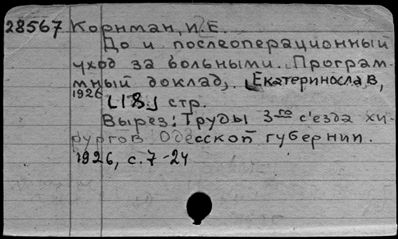 28567 Корнман, И.Е.
До и послеоперационный
уход за больными. Програм-
мный доклад,. Екатеринослав,
1926 [18] стр.
Вырез: Труды 3-го с'езда хи-
рургов Одесской губернии.
1926, с. 7-24